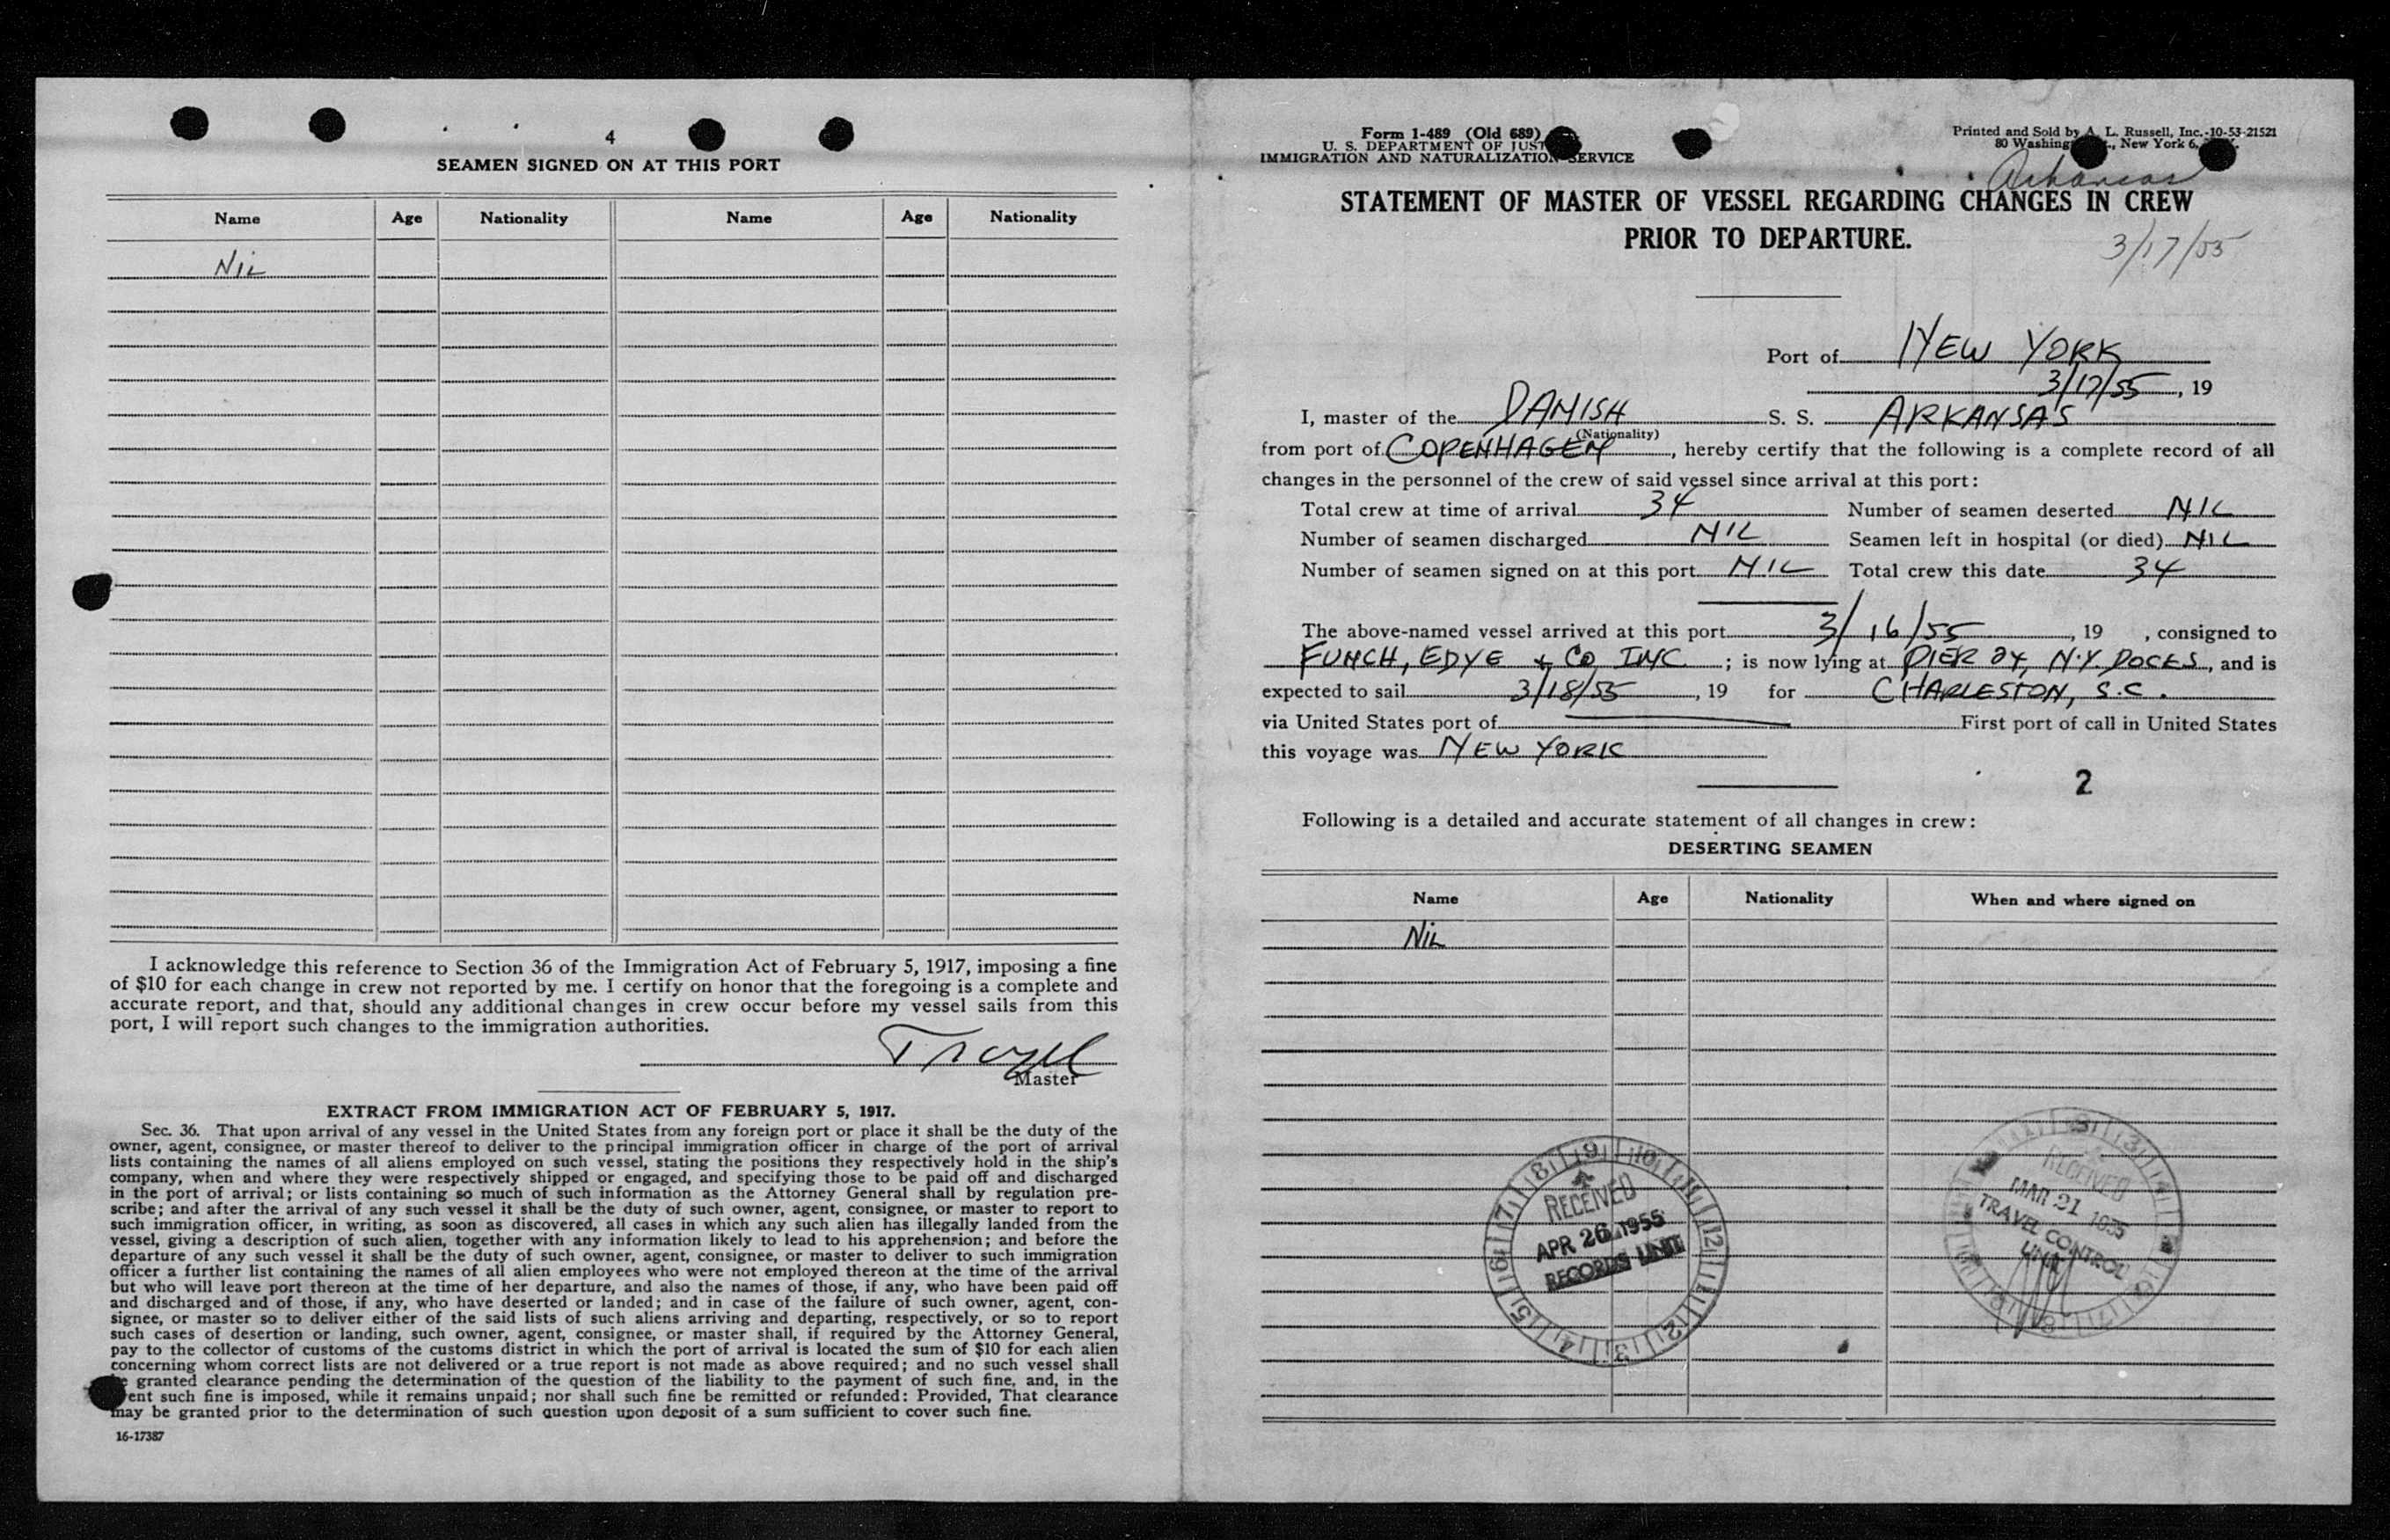 4
SEAMEN SIGNED ON AT THIS PORT
Name Age Nationality Name Age Nationality
Nil
I acknowledge this reference to Section 36 of the Immigration Act of February 5, 1917, imposing a fine
of $10 for each change in crew not reported by me. I certify on honor that the foregoing is a complete and
accurate report, and that, should any additional changes in crew occur before my vessel sails from this
port, I will report such changes to the immigration authorities.
Master
EXTRACT FROM IMMIGRATION ACT OF FEBRUARY 5, 1917.
Sec. 36. That upon arrival of any vessel in the United States from any foreign port or place it shall be the duty of the
owner, agent, consignee, or master thereof to deliver to the principal immigration officer in charge of the port of arrival
lists containing the names of all aliens employed on such vessel, stating the positions they respectively hold in the ship's
company, when and where they were respectively shipped or engaged, and specifying those to be paid off and discharged
in the port of arrival; or lists containing so much of such information as the Attorney General shall by regulation pre-
scribe; and after the arrival of any such vessel it shall be the duty of such owner, agent, consignee, or master to report to
such immigration officer, in writing, as soon as discovered, all cases in which any such alien has illegally landed from the
vessel, giving a description of such alien, together with any information likely to lead to his apprehension; and before the
departure of any such vessel it shall be the duty of such owner, agent, consignee, or master to deliver to such immigration
officer a further list containing the names of all alien employees who were not employed thereon at the time of the arrival
but who will leave port thereon at the time of her departure, and also the names of those, if any, who have been paid off
and discharged and of those, if any, who have deserted or landed; and in case of the failure of such owner, agent, con-
signee, or master so to deliver either of the said lists of such aliens arriving and departing, respectively, or so to report
such cases of desertion or landing, such owner, agent, consignee, or master shall, if required by the Attorney General,
pay to the collector of customs of the customs district in which the port of arrival is located the sum of $10 for each alien
concerning whom correct lists are not delivered or a true report is not made as above required; and no such vessel shall
granted clearance pending the determination of the question of the liability to the payment of such fine, and, in the
ent such fine is imposed, while it remains unpaid; nor shall such fine be remitted or refunded: Provided, That clearance
may be granted prior to the determination of such question upon deposit of a sum sufficient to cover such fine.
16-17387
Form 1-489 (Old 689)
U. S. DEPARTMENT OF JUST
IMMIGRATION AND NATURALIZATION SERVICE
Printed and Sold by A. L. Russell, Inc.-10-53-21521
80 Washing , New York 6,
Arkansas
STATEMENT OF MASTER OF VESSEL REGARDING CHANGES IN CREW
PRIOR TO DEPARTURE.
3/17/55
Port of NEW YORK
3/17/55, 19
I, master of the DANISH S. S. ARKANSAS
(Nationality)
from port of COPENHAGEN, hereby certify that the following is a complete record of all
changes in the personnel of the crew of said vessel since arrival at this port:
Total crew at time of arrival 34 Number of seamen deserted NIL
Number of seamen discharged NIL Seamen left in hospital (or died) NIL
Number of seamen signed on at this port NIL Total crew this date 34
The above-named vessel arrived at this port 3/16/55, 19 , consigned to
FUNCH, EDYE & Co INC; is now lying at PIER 24, N.Y. DOCKS, and is
expected to sail 3/18/55, 19 for CHARLESTON, S.C.
via United States port of First port of call in United States
this voyage was NEW YORK
2
Following is a detailed and accurate statement of all changes in crew:
DESERTING SEAMEN
Name Age Nationality When and where signed on
Nil
RECEIVED
APR 26 1955
RECORDS UNIT
RECEIVED
MAR 21 1955
TRAVEL CONTROL
UNIT